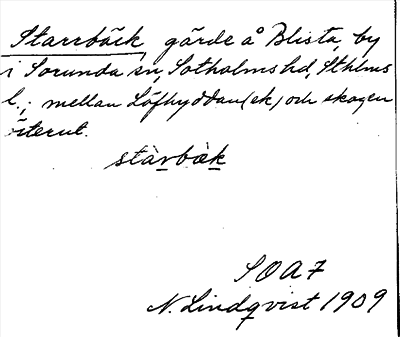 Starrbäck, gärde å Blista, by
i Sorunda sn, Sotholms hd, Sthlms
l.; mellan Löfhyddan (ek) och skogen
österut.
stàrbæk
SOA 7
N. Lindqvist 1909